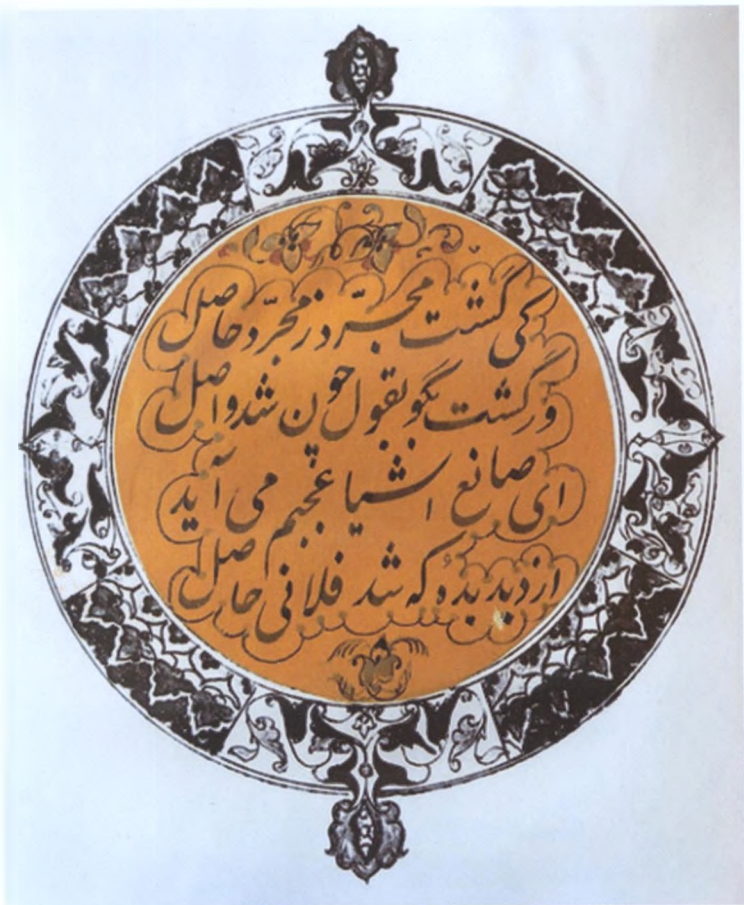 کی گشت مجرّد ز مجرّد حاصل
ورگشت بگو بقول چون شد واصل
ای صانع اشیا عجبم می آید
از دبدبدهٔ که شد فلانی حاصل